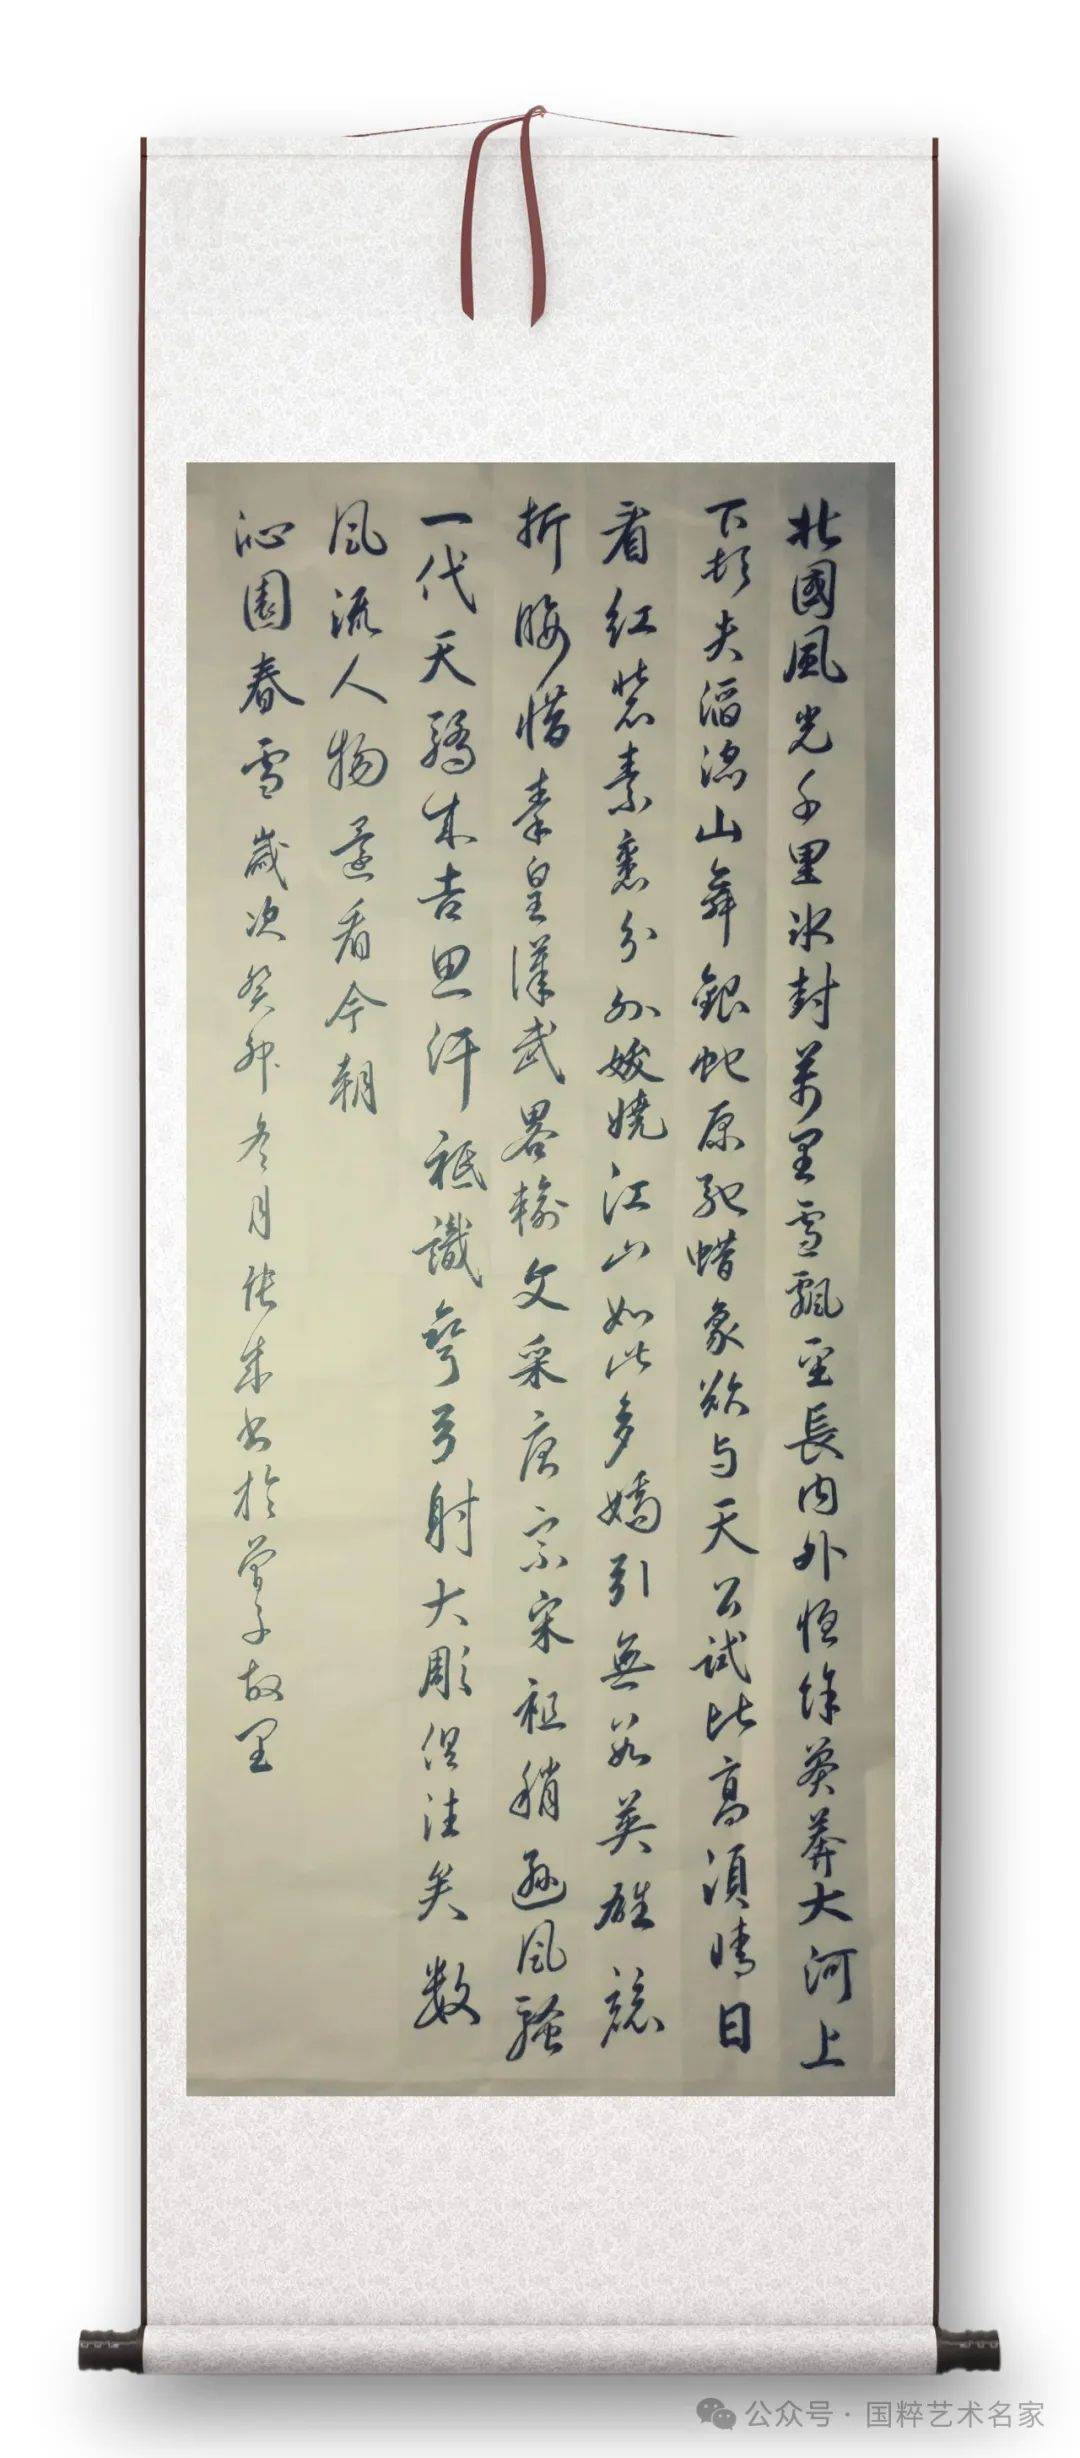 北國風光千里冰封萬里雪飄望長內外惟餘莽莽大河上
下頓失滔滔山舞銀蛇原馳蜡象欲与天公試比高須晴日
看紅裝素裹分外妖嬈江山如此多嬌引無數英雄競
折腰惜秦皇漢武畧輸文采唐宗宋祖稍遜風騷
一代天驕成吉思汗祗識彎弓射大彫俱往矣数
風流人物還看今朝
沁園春雪歲次癸卯冬月張成书於曾子故里
公众号·国粹艺术名家